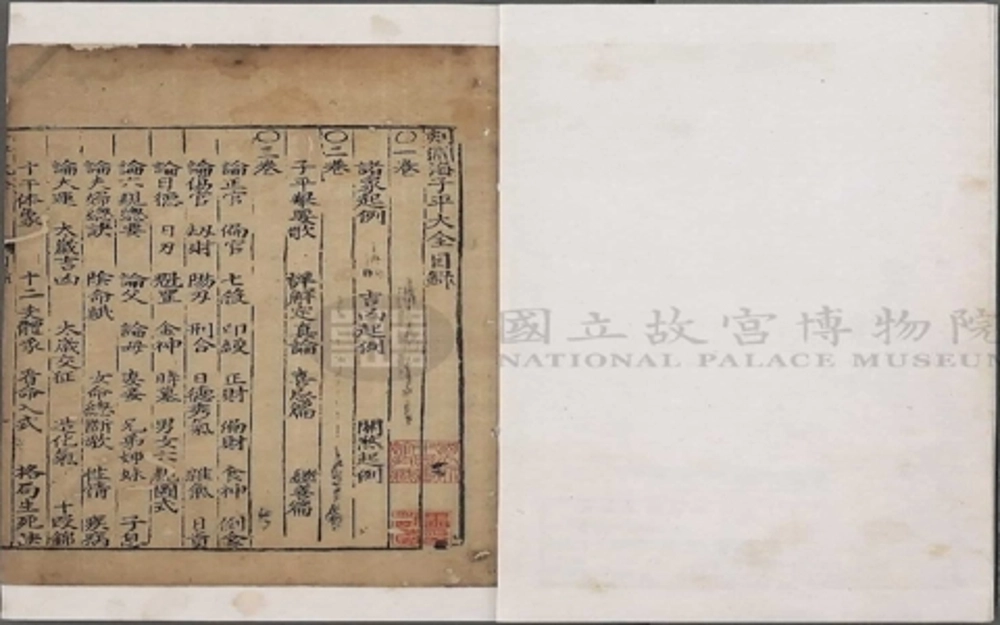 刻淵海子平大全目録
〇一卷
諸家起例 吉凶起例 關煞起例
〇二卷
子平舉要歌 詳解定真論 喜忌篇 繼善篇
〇三卷
論正官 偏官 七殺 印綬 正財 偏財 食神 倒食
論傷官 刼財 陽刃 刑合 日德秀氣 雜氣 日貴
論日德 日刃 魁罡 金神 時墓 男女六親圖式
論六親總要 論父 論母 妻妾 兄弟姊妹 子息
論夫婦總訣 陰命賦 女命總斷歌 性情 疾病
論大運 太歲吉凶 太歲交征 造化氣 十段錦
十干体象 十二支體象 看命入式 格局生死決
國立故宮博物院
NATIONAL PALACE MUSEUM